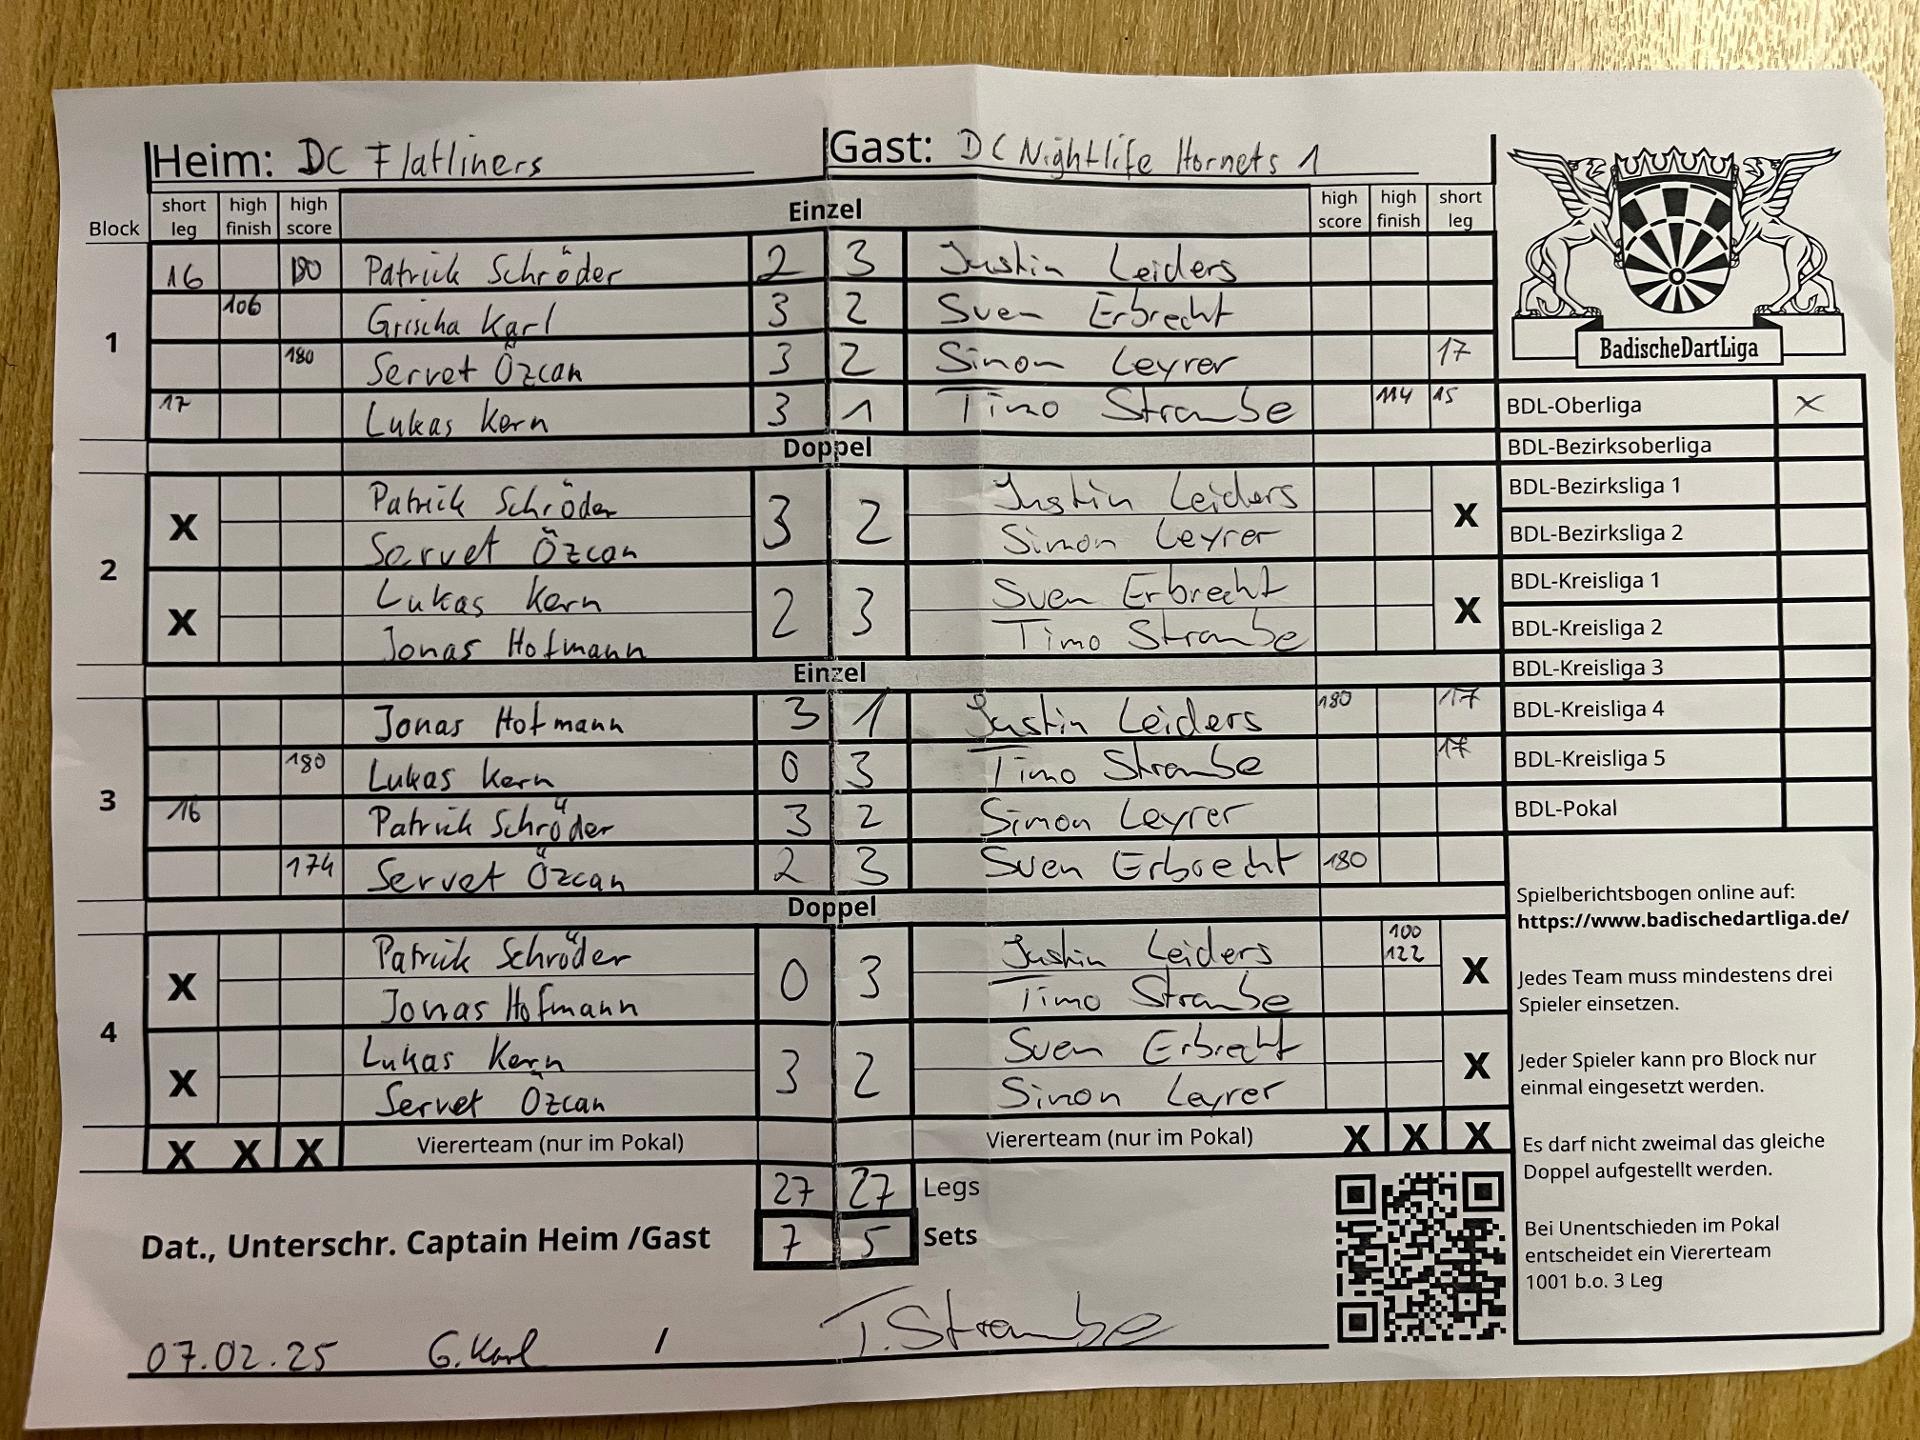 Heim: DC Flatliners Gast: DC Nightlife Hornets 1
Block short leg high finish high score Einzel high score high finish short leg
1
16 180 Patrick Schröder 2 3 Justin Leiders
106 Grischa Karl 3 2 Sven Erbrecht
180 Servet Özcan 3 2 Simon Leyrer 17
17 Lukas Kern 3 1 Timo Straube 114 15
Doppel
2
X Patrick Schröder 3 2 Justin Leiders X
Servet Özcan Simon Leyrer
X Lukas Kern 2 3 Sven Erbrecht X
Jonas Hofmann Timo Straube
Einzel
3
Jonas Hofmann 3 1 Justin Leiders 180 17
180 Lukas Kern 0 3 Timo Straube 17
16 Patrick Schröder 3 2 Simon Leyrer
174 Servet Özcan 2 3 Sven Erbrecht 180
Doppel
4
X Patrick Schröder 0 3 Justin Leiders 100 122 X
Jonas Hofmann Timo Straube
X Lukas Kern 3 2 Sven Erbrecht X
Servet Özcan Simon Leyrer
X X X Viererteam (nur im Pokal) Viererteam (nur im Pokal) X X X
27 27 Legs
Dat., Unterschr. Captain Heim /Gast 7 5 Sets
07.02.25 G. Karl / T. Straube
BadischeDartLiga
BDL-Oberliga X
BDL-Bezirksoberliga
BDL-Bezirksliga 1
BDL-Bezirksliga 2
BDL-Kreisliga 1
BDL-Kreisliga 2
BDL-Kreisliga 3
BDL-Kreisliga 4
BDL-Kreisliga 5
BDL-Pokal
Spielberichtsbogen online auf:
https://www.badischedartliga.de/
Jedes Team muss mindestens drei
Spieler einsetzen.
Jeder Spieler kann pro Block nur
einmal eingesetzt werden.
Es darf nicht zweimal das gleiche
Doppel aufgestellt werden.
Bei Unentschieden im Pokal
entscheidet ein Viererteam
1001 b.o. 3 Leg